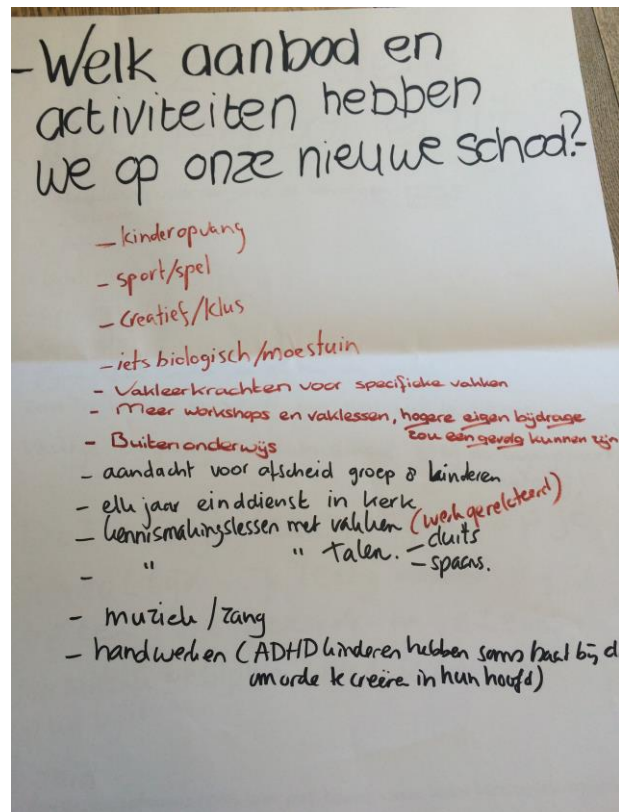 -Welk aanbod en
activiteiten hebben
we op onze nieuwe school?-
- kinderopvang
- sport/spel
- Creatief/klus
- iets biologisch/moestuin
- Vakleerkrachten voor specifieke vakken
- Meer workshops en vaklessen, hogere eigen bijdrage
zou een gevolg kunnen zijn
- Buitenonderwijs
- aandacht voor afscheid groep 8 kinderen
- elk jaar einddienst in kerk
- kennismakingslessen met vakken (werkgerelateerd)
- " " talen. - duits
- spaans.
- muziek / zang
- handwerken (ADHD kinderen hebben soms baat bij d
om orde te creëre in hun hoofd)